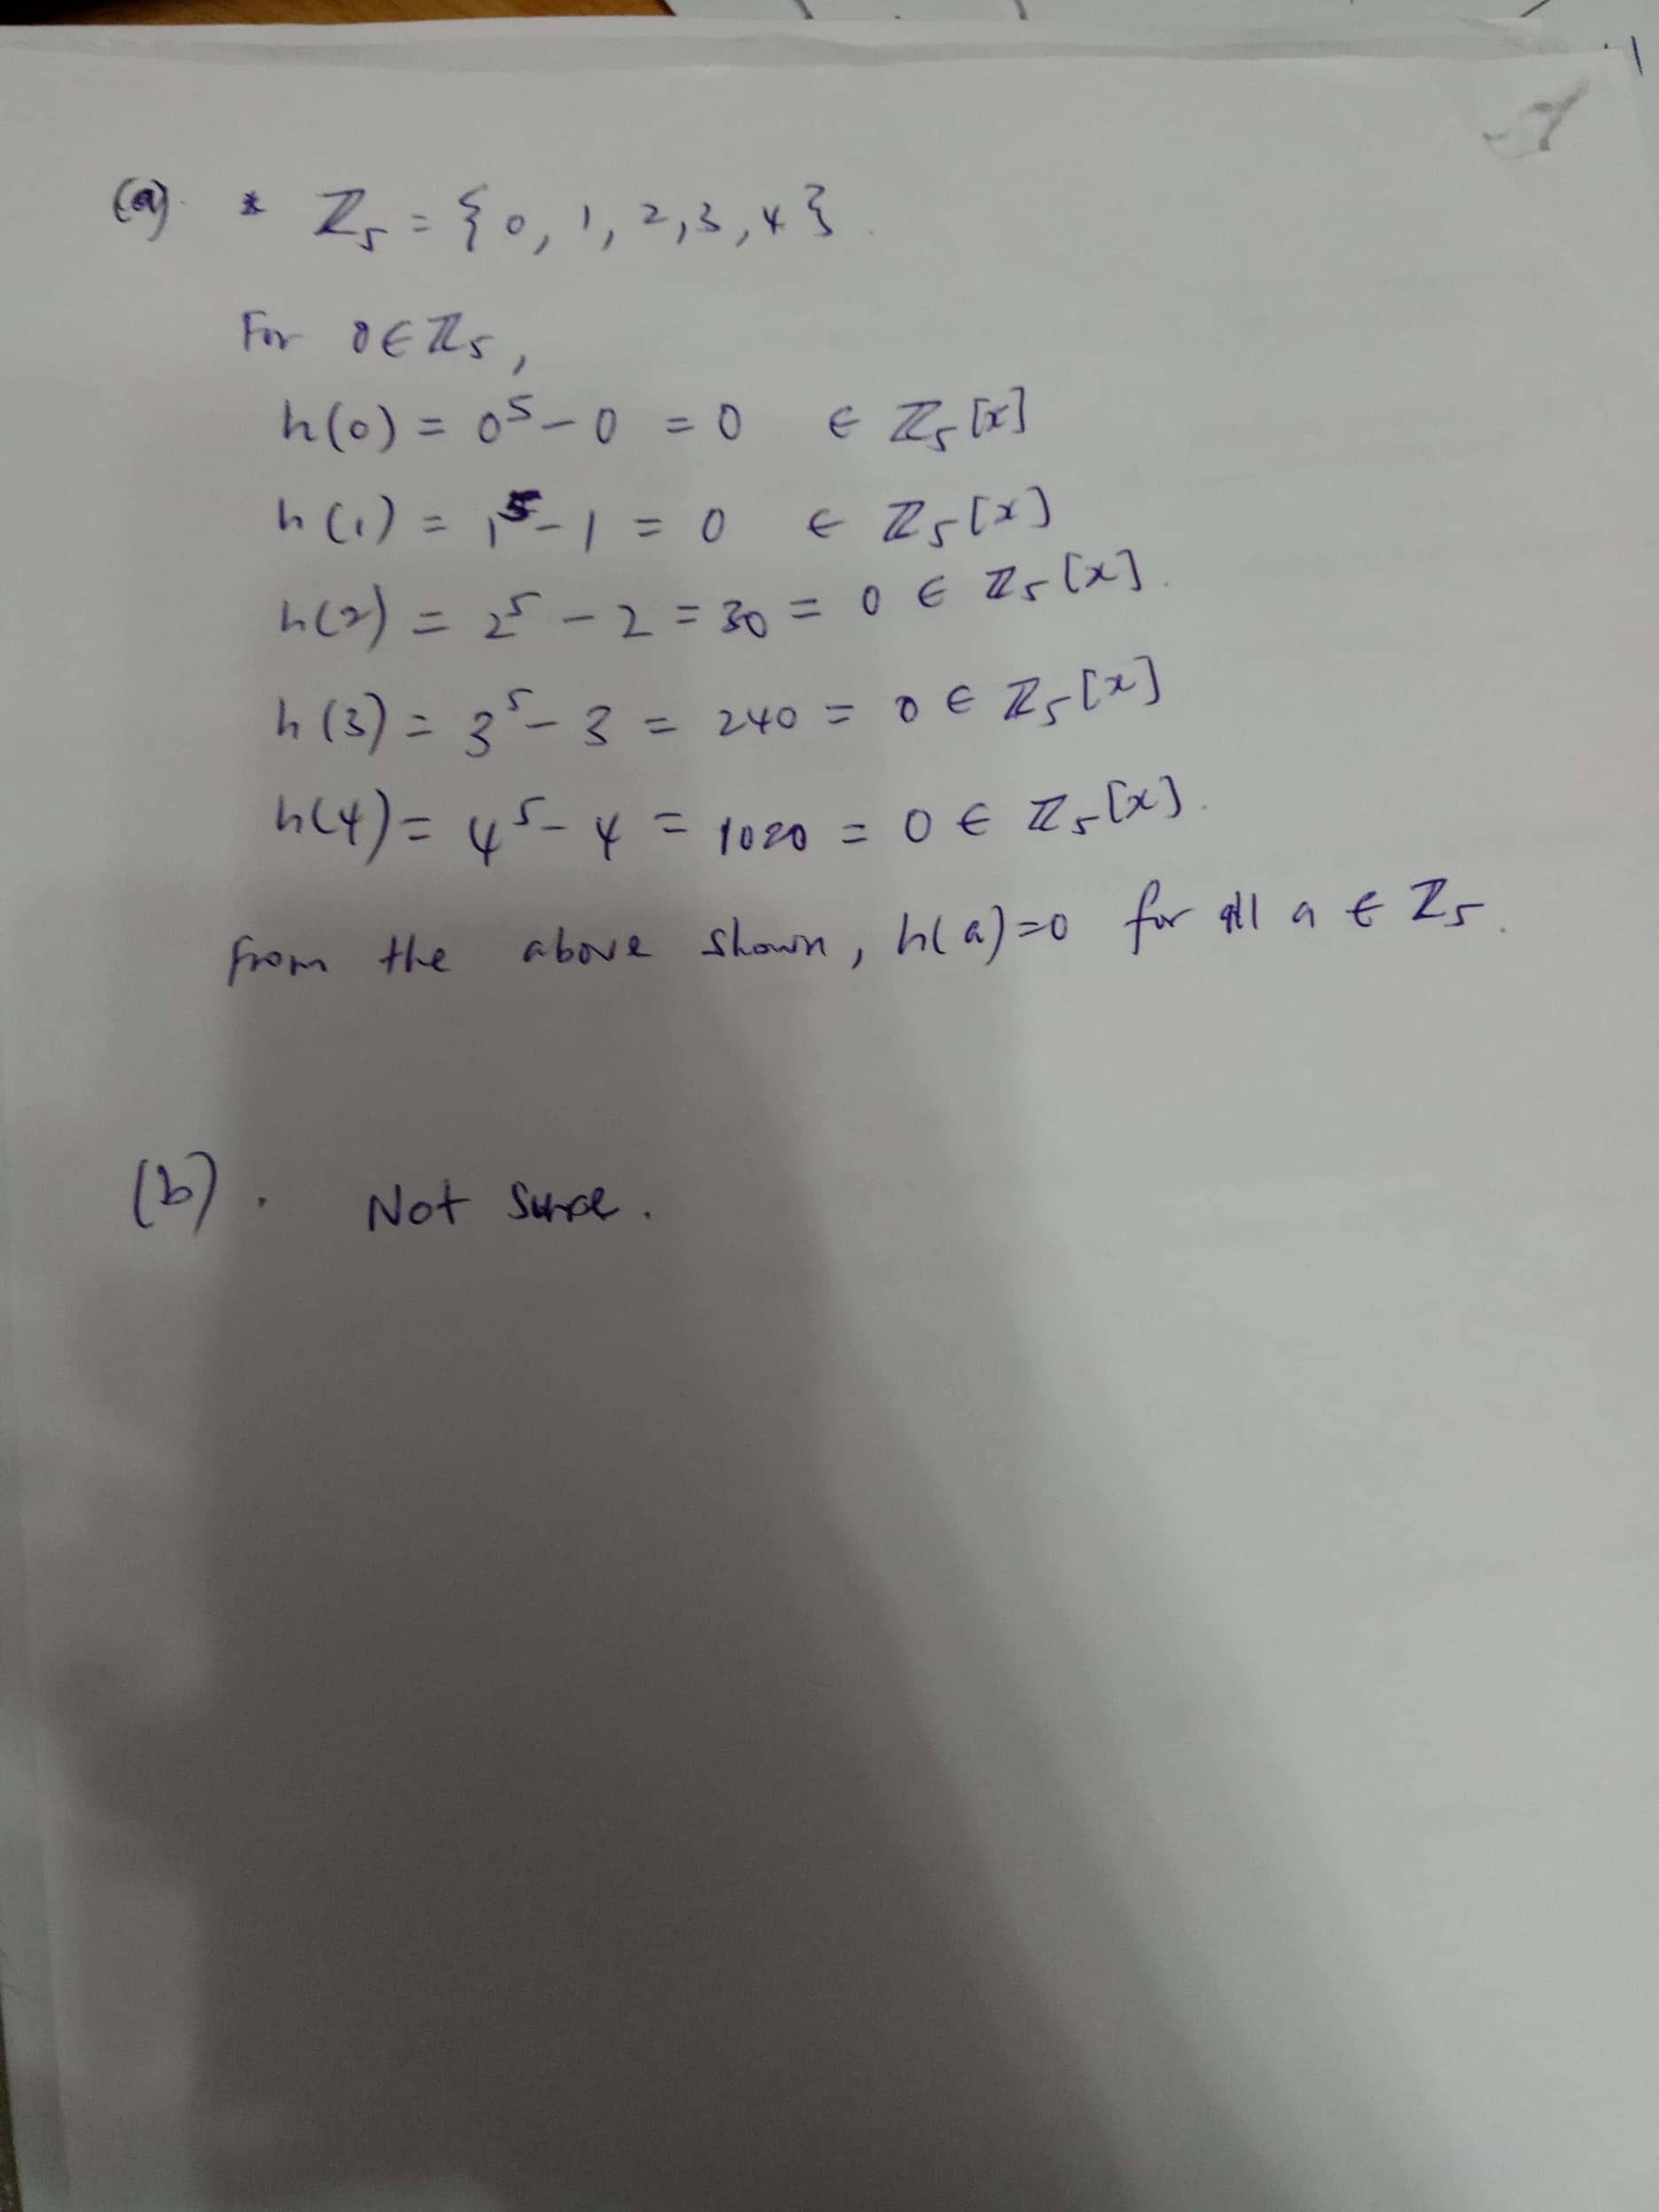 (a). * ℤ₅ = {0, 1, 2, 3, 4}.
For 0 ∈ ℤ₅,
h(0) = 0⁵ - 0 = 0 ∈ ℤ₅[x]
h(1) = 1⁵ - 1 = 0 ∈ ℤ₅[x]
h(2) = 2⁵ - 2 = 30 = 0 ∈ ℤ₅[x].
h(3) = 3⁵ - 3 = 240 = 0 ∈ ℤ₅[x]
h(4) = 4⁵ - 4 = 1020 = 0 ∈ ℤ₅[x].
from the above shown, h(a)=0 for all a ∈ ℤ₅.
(b). Not sure.